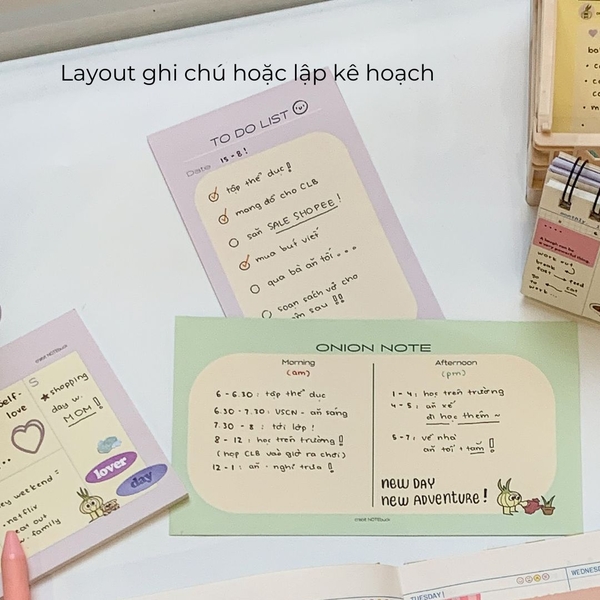 Layout ghi chú hoặc lập kê hoạch
TO DO LIST
Date 15 - 8!
tập thể dục!
mang đồ cho CLB
săn SALE SHOPEE!
mua bút viết
qua bà ăn tối...
soạn sách vở cho
sau !!
ONION NOTE
Morning
(am)
6 - 6.30 : tập thể dục
6.30 - 7.30 : VSCN - ăn sáng
7.30 - 8 : tới lớp!
8 - 12 : học trên trường!
(họp CLB vào giờ ra chơi)
12 - 1 : ăn - nghỉ trưa!
Afternoon
(pm)
1 - 4 : học trên trường
4 - 5 : ăn xế
đi học thêm ~
5 - 7 : về nhà
ăn tối + tắm!
NEW DAY
NEW ADVENTURE!
self-
love
S
shopping
day w.
MOM!
lover
day
weekend :
netflix
eat out
w. family
work out
break
TUESDAY!
WEDNES